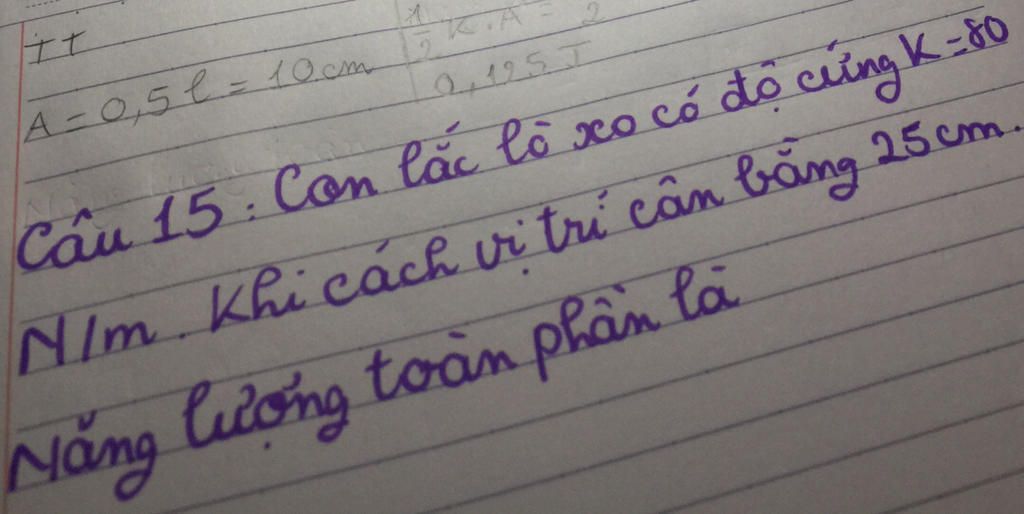 TT
1/2 K.A = 2
A = 0,5 l = 10 cm
0,125 J
Câu 15 : Con lắc lò xo có độ cứng K = 80
N/m . Khi cách vị trí cân bằng 25 cm.
Năng lượng toàn phần là